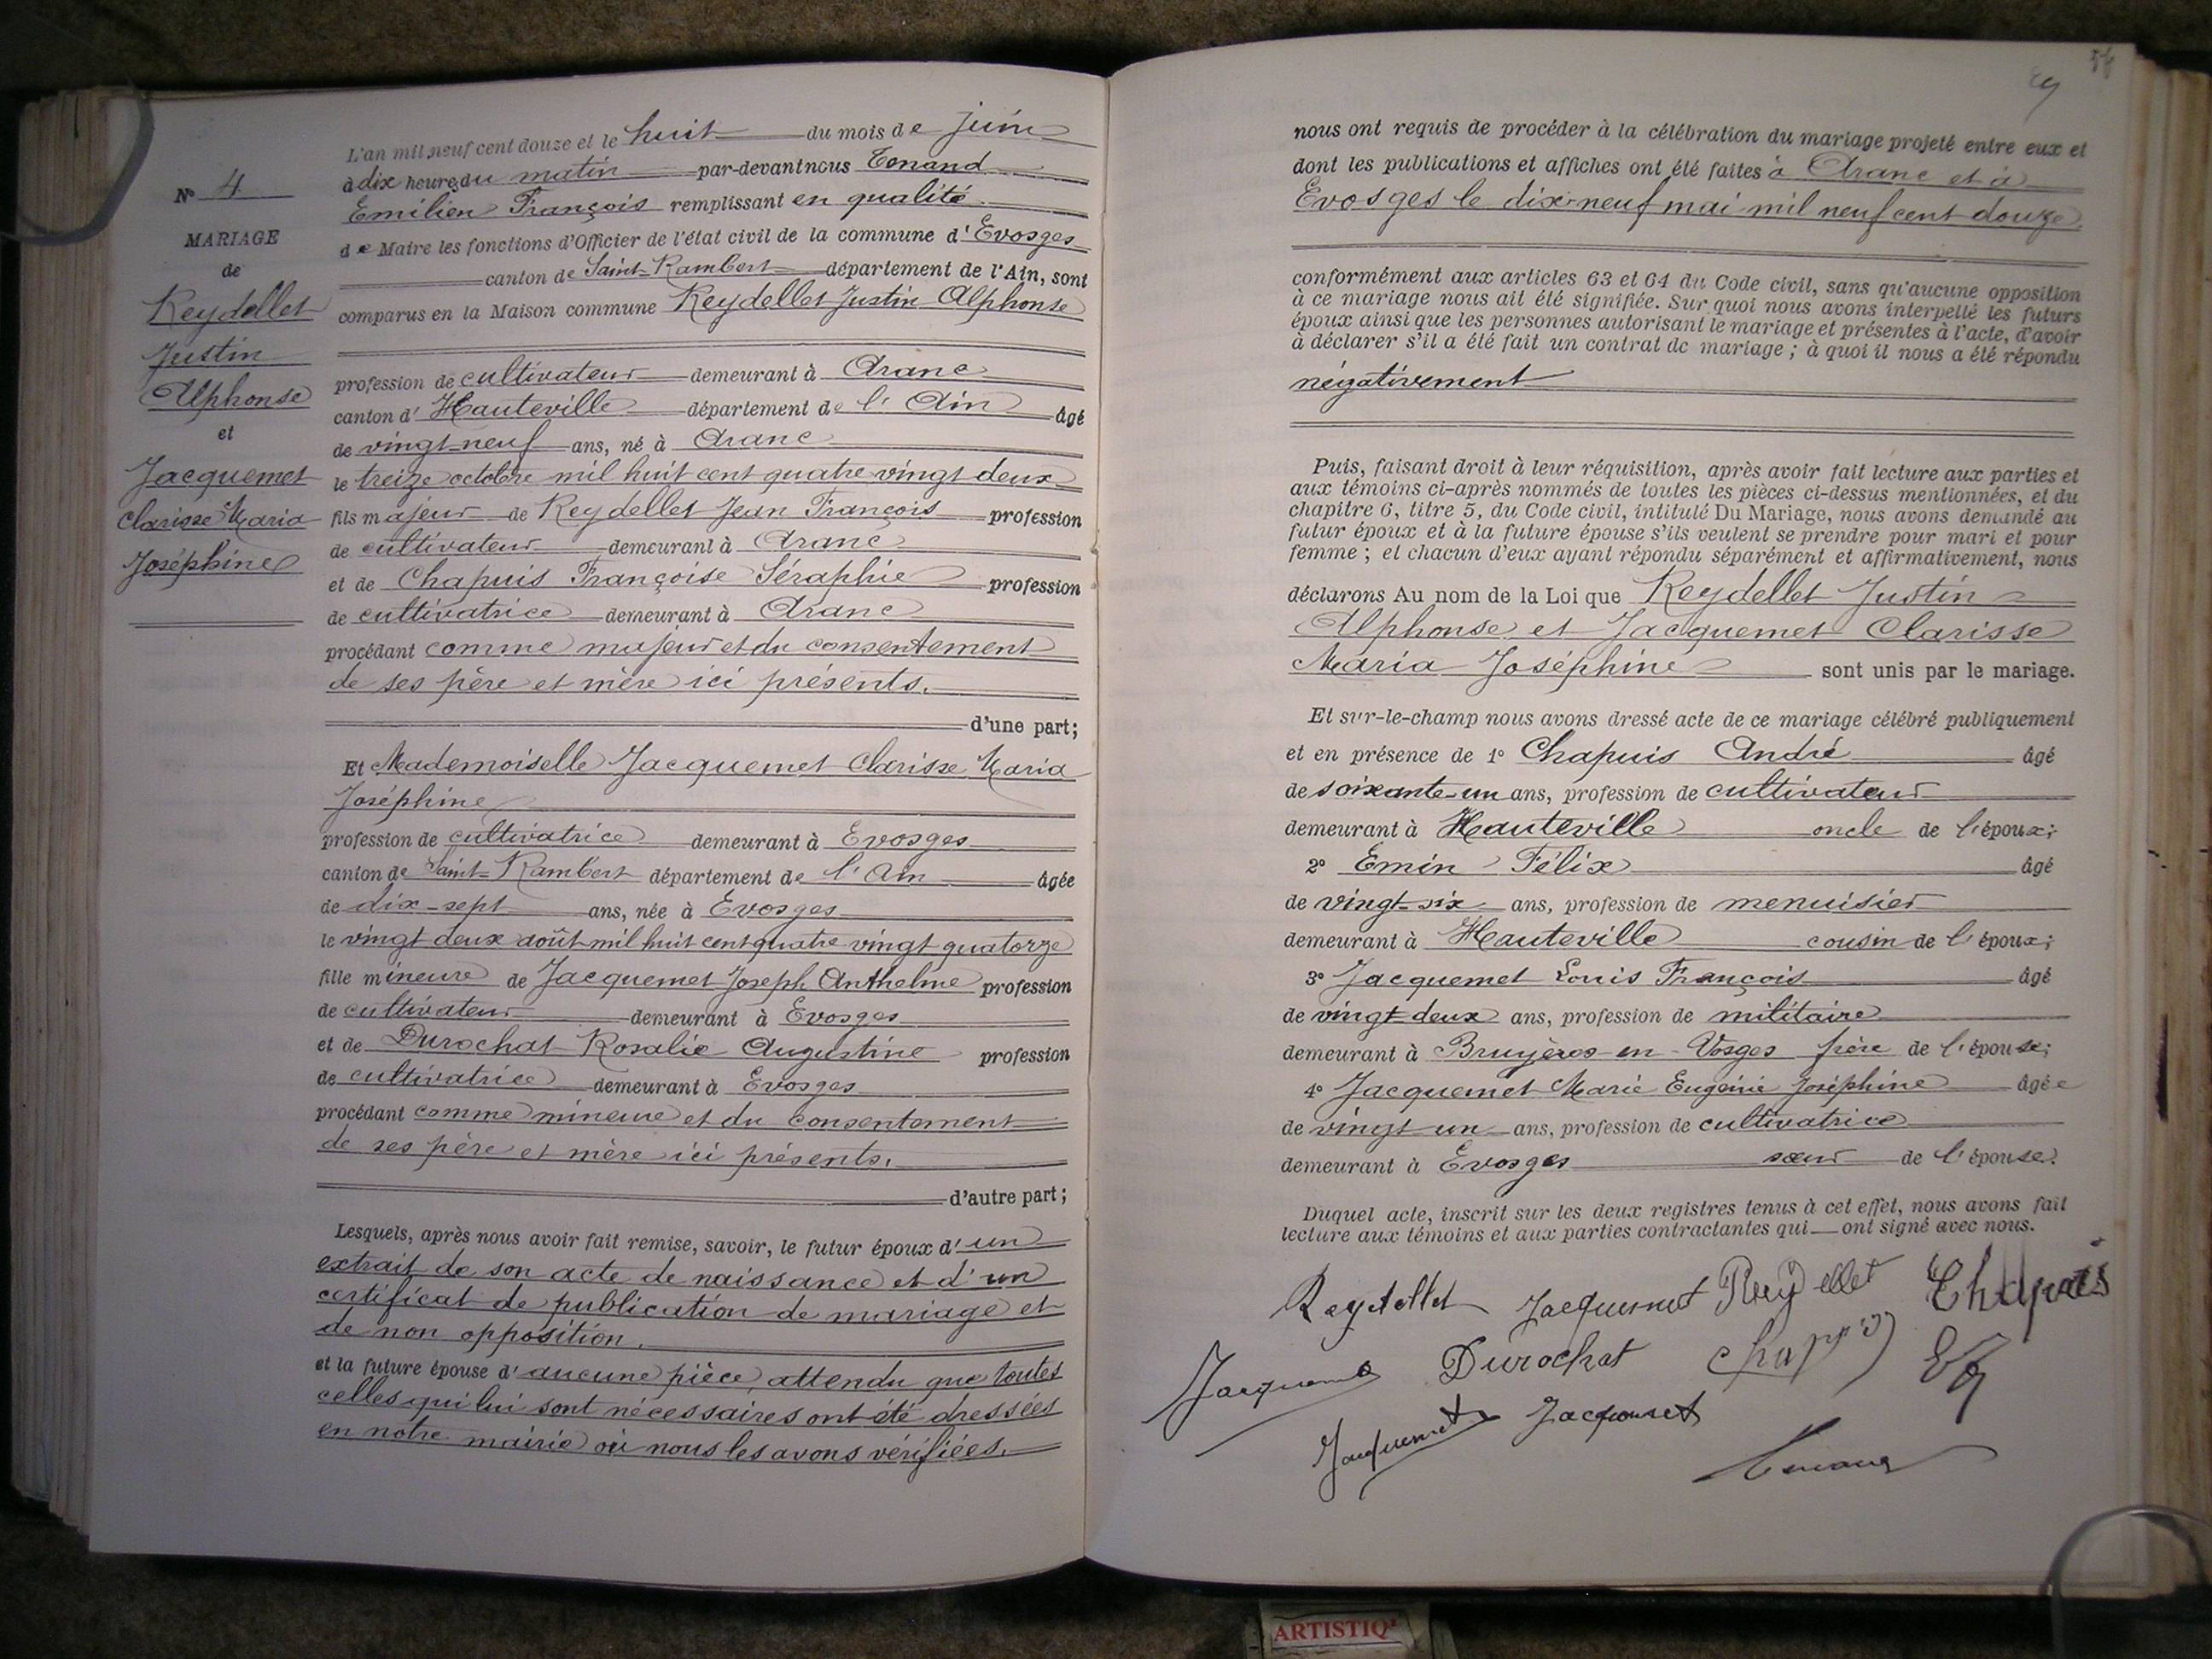 N° 4
MARIAGE
de
Reydellet
Justin
Alphonse
et
Jacquemet
Clarisse Maria
Joséphine
L'an mil neuf cent douze et le huit du mois de juin
à dix heures du matin par-devant nous Tenand
Emilien François remplissant en qualité
de Maire les fonctions d'Officier de l'état civil de la commune d'Evosges
canton de Saint-Rambert département de l'Ain, sont
comparus en la Maison commune Reydellet Justin Alphonse
profession de cultivateur demeurant à Aranc
canton d'Hauteville département de l'Ain âgé
de vingt-neuf ans, né à Aranc
le treize octobre mil huit cent quatre vingt deux
fils majeur de Reydellet Jean François profession
de cultivateur demeurant à Aranc
et de Chapuis Françoise Séraphie profession
de cultivatrice demeurant à Aranc
procédant comme majeur et du consentement
de ses père et mère ici présents.
d'une part;
Et Mademoiselle Jacquemet Clarisse Maria
Joséphine
profession de cultivatrice demeurant à Evosges
canton de Saint-Rambert département de l'Ain âgée
de dix-sept ans, née à Evosges
le vingt deux août mil huit cent quatre vingt quatorze
fille mineure de Jacquemet Joseph Anthelme profession
de cultivateur demeurant à Evosges
et de Durochat Rosalie Augustine profession
de cultivatrice demeurant à Evosges
procédant comme mineure et du consentement
de ses père et mère ici présents.
d'autre part;
Lesquels, après nous avoir fait remise, savoir, le futur époux d'un
extrait de son acte de naissance et d'un
certificat de publication de mariage et
de non opposition.
et la future épouse d'aucune pièce, attendu que toutes
celles qui lui sont nécessaires ont été dressées
en notre mairie où nous les avons vérifiées.
nous ont requis de procéder à la célébration du mariage projeté entre eux et
dont les publications et affiches ont été faites à Aranc et à
Evosges le dix-neuf mai mil neuf cent douze
conformément aux articles 63 et 64 du Code civil, sans qu'aucune opposition
à ce mariage nous ait été signifiée. Sur quoi nous avons interpellé les futurs
époux ainsi que les personnes autorisant le mariage et présentes à l'acte, d'avoir
à déclarer s'il a été fait un contrat de mariage ; à quoi il nous a été répondu
négativement
Puis, faisant droit à leur réquisition, après avoir fait lecture aux parties et
aux témoins ci-après nommés de toutes les pièces ci-dessus mentionnées, et du
chapitre 6, titre 5, du Code civil, intitulé Du Mariage, nous avons demandé au
futur époux et à la future épouse s'ils veulent se prendre pour mari et pour
femme ; et chacun d'eux ayant répondu séparément et affirmativement, nous
déclarons Au nom de la Loi que Reydellet Justin
Alphonse et Jacquemet Clarisse
Maria Joséphine sont unis par le mariage.
Et sur-le-champ nous avons dressé acte de ce mariage célébré publiquement
et en présence de 1° Chapuis André âgé
de soixante-un ans, profession de cultivateur
demeurant à Hauteville oncle de l'époux;
2° Emin Félix âgé
de vingt-six ans, profession de menuisier
demeurant à Hauteville cousin de l'époux;
3° Jacquemet Louis François âgé
de vingt-deux ans, profession de militaire
demeurant à Bruyères-en-Vosges frère de l'épouse;
4° Jacquemet Marie Eugénie Joséphine âgée
de vingt un ans, profession de cultivatrice
demeurant à Evosges sœur de l'épouse.
Duquel acte, inscrit sur les deux registres tenus à cet effet, nous avons fait
lecture aux témoins et aux parties contractantes qui ont signé avec nous.
Reydellet Jacquemet Reydellet Chapuis
Jacquemet Durochat Chapuis
Jacquemet Jacquemet
Tenand
ARTISTIQ